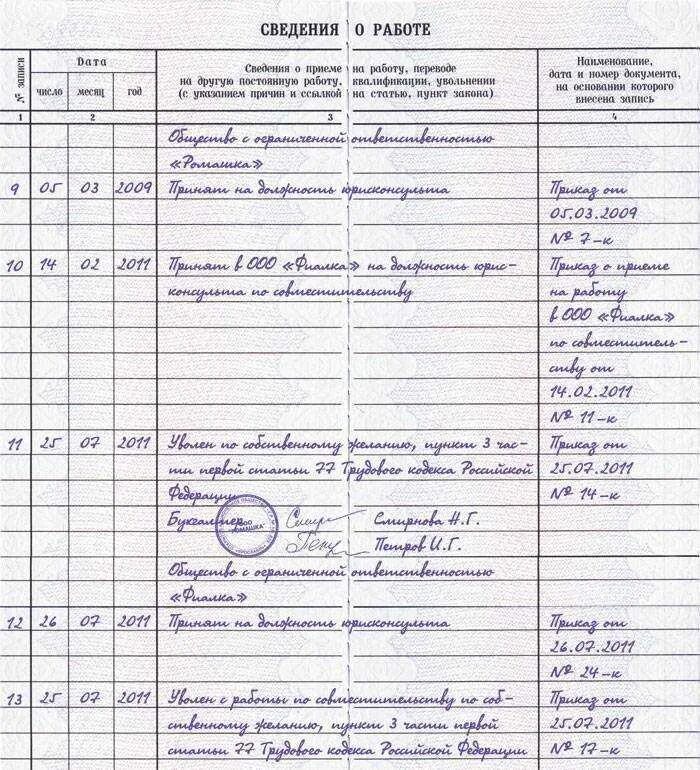 СВЕДЕНИЯ О РАБОТЕ
№ записи
Дата
число месяц год
Сведения о приеме на работу, переводе
на другую постоянную работу, квалификации, увольнении
(с указанием причин и ссылкой на статью, пункт закона)
Наименование,
дата и номер документа,
на основании которого
внесена запись
1 2 3 4
Общество с ограниченной ответственностью
«Ромашка»
9 05 03 2009 Принят на должность юрисконсульта Приказ от
05.03.2009
№ 7-к
10 14 02 2011 Принят в ООО «Фиалка» на должность юрис- Приказ о приеме
консульта по совместительству на работу
в ООО «Фиалка»
по совместитель-
ству от
14.02.2011
№ 11-к
11 25 07 2011 Уволен по собственному желанию, пункт 3 час- Приказ от
ти первой статьи 77 Трудового кодекса Российской 25.07.2011
Федерации № 14-к
Бухгалтер Смирнова Н.Г.
Петров И.Г.
ООО
"РОМАШКА"
Общество с ограниченной ответственностью
«Фиалка»
12 26 07 2011 Принят на должность юрисконсульта Приказ от
26.07.2011
№ 24-к
13 25 07 2011 Уволен с работы по совместительству по соб- Приказ от
ственному желанию, пункт 3 части первой 25.07.2011
статьи 77 Трудового кодекса Российской Федерации № 17-к